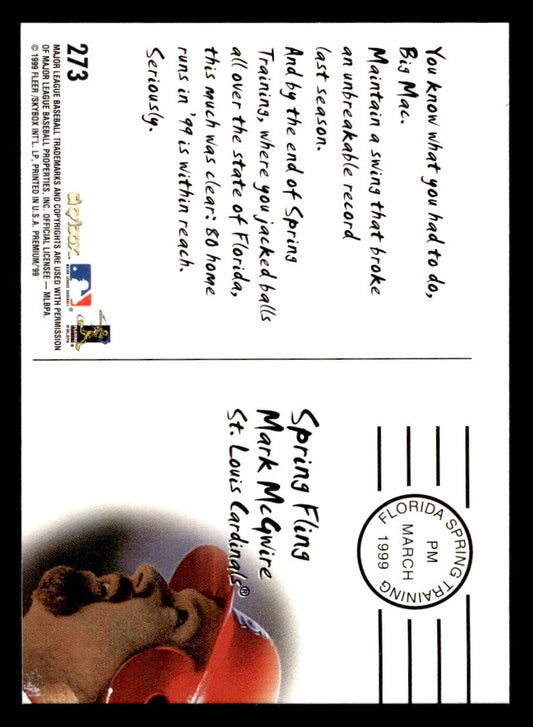 You know what you had to do,
Big Mac.
Maintain a swing that broke
an unbreakable record
last season.
And by the end of Spring
Training, where you jacked balls
all over the state of Florida,
this much was clear: 80 home
runs in '99 is within reach.
Seriously.
273
skybox
MAJOR LEAGUE BASEBALL TRADEMARKS AND COPYRIGHTS ARE USED WITH PERMISSION
OF MAJOR LEAGUE BASEBALL PROPERTIES, INC. OFFICIAL LICENSEE — MLBPA.
© 1999 FLEER/SKYBOX INT'L. LP, PRINTED IN U.S.A. PREMIUM/'99
FLORIDA SPRING TRAINING
PM
MARCH
1999
Spring Fling
Mark McGwire
St. Louis Cardinals®